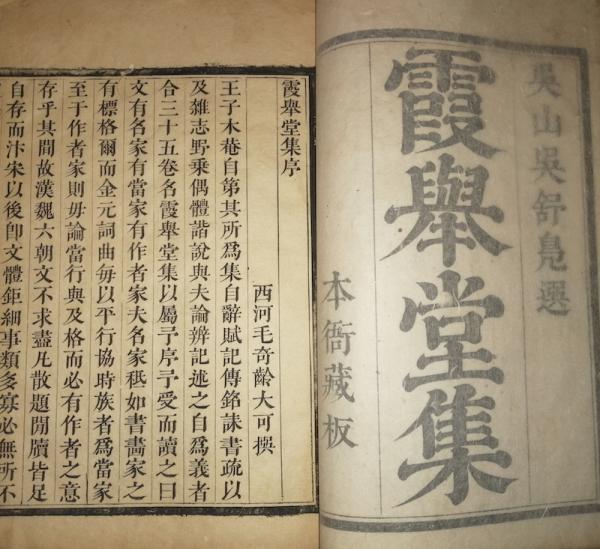 吳山吳舒鳧選
霞舉堂集
本衙藏板
霞舉堂集序
西河毛奇齡大可撰
王子木菴自第其所爲集自辭賦記傳銘誄書疏以
及雜志野乘偶體諧說與夫論辨記述之自爲義者
合三十五卷名霞舉堂集以屬予序予受而讀之曰
文有名家有當家有作者家夫名家秪如書畫家之
有標格爾而金元詞曲每以平行協時族者爲當家
至于作者家則毋論當行與及格而必有作者之意
存乎其間故漢魏六朝文不求盡凡散題閒牘皆足
自存而汴宋以後卽文體鉅細事類多寡必無所不